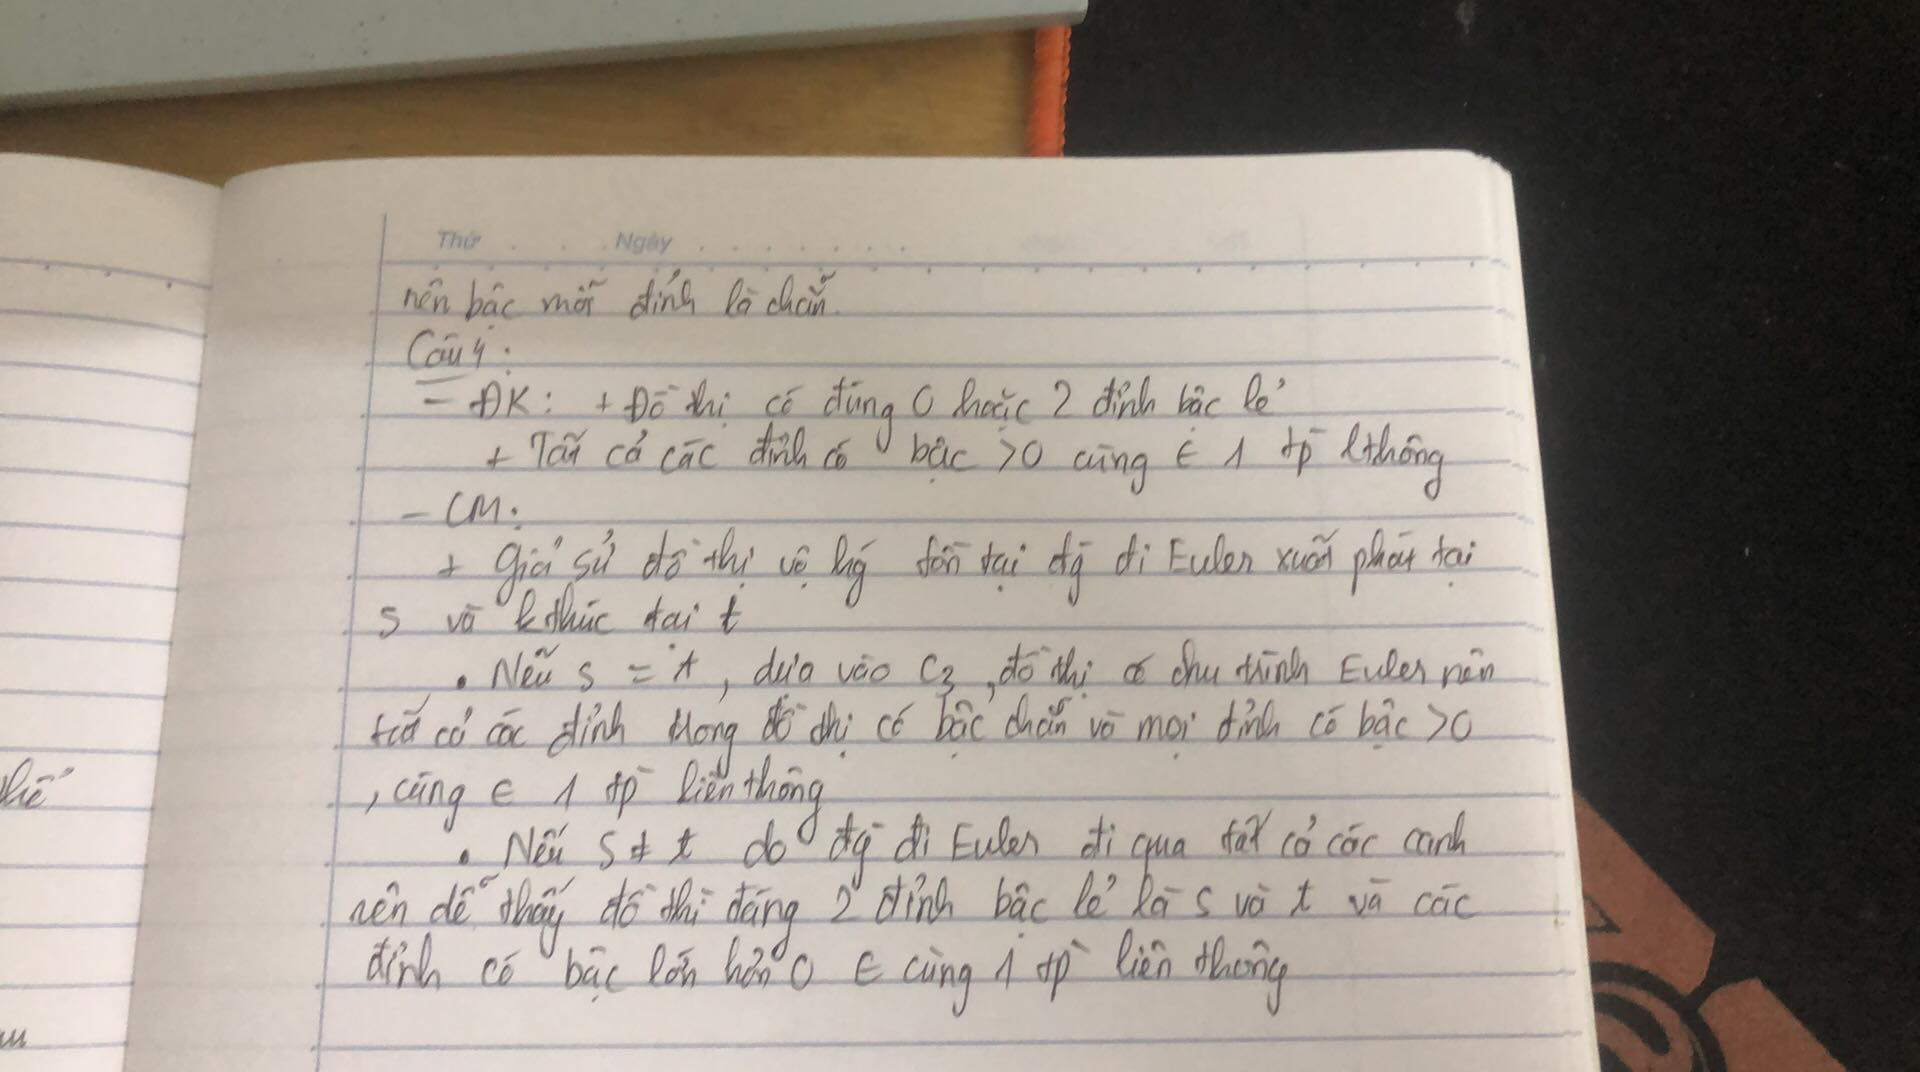 Thứ . . . Ngày . . . . . . . .
nên bậc mỗi đỉnh là chẵn.
Câu 4:
- ĐK: + Đồ thị có đúng 0 hoặc 2 đỉnh bậc lẻ
+ Tất cả các đỉnh có bậc >0 cùng ∈ 1 tp lthông
- CM:
+ Giả sử đồ thị vô hg tồn tại đg đi Euler xuất phát tại
s và kthúc tại t
• Nếu s = t, dựa vào C3, đồ thị có chu trình Euler nên
tất cả các đỉnh trong đồ thị có bậc chẵn và mọi đỉnh có bậc >0
, cùng ∈ 1 tp liên thông
• Nếu s ≠ t do đg đi Euler đi qua tất cả các cạnh
nên dễ thấy đồ thì đúng 2 đỉnh bậc lẻ là s và t và các
đỉnh có bậc lớn hơn 0 ∈ cùng 1 tp liên thông